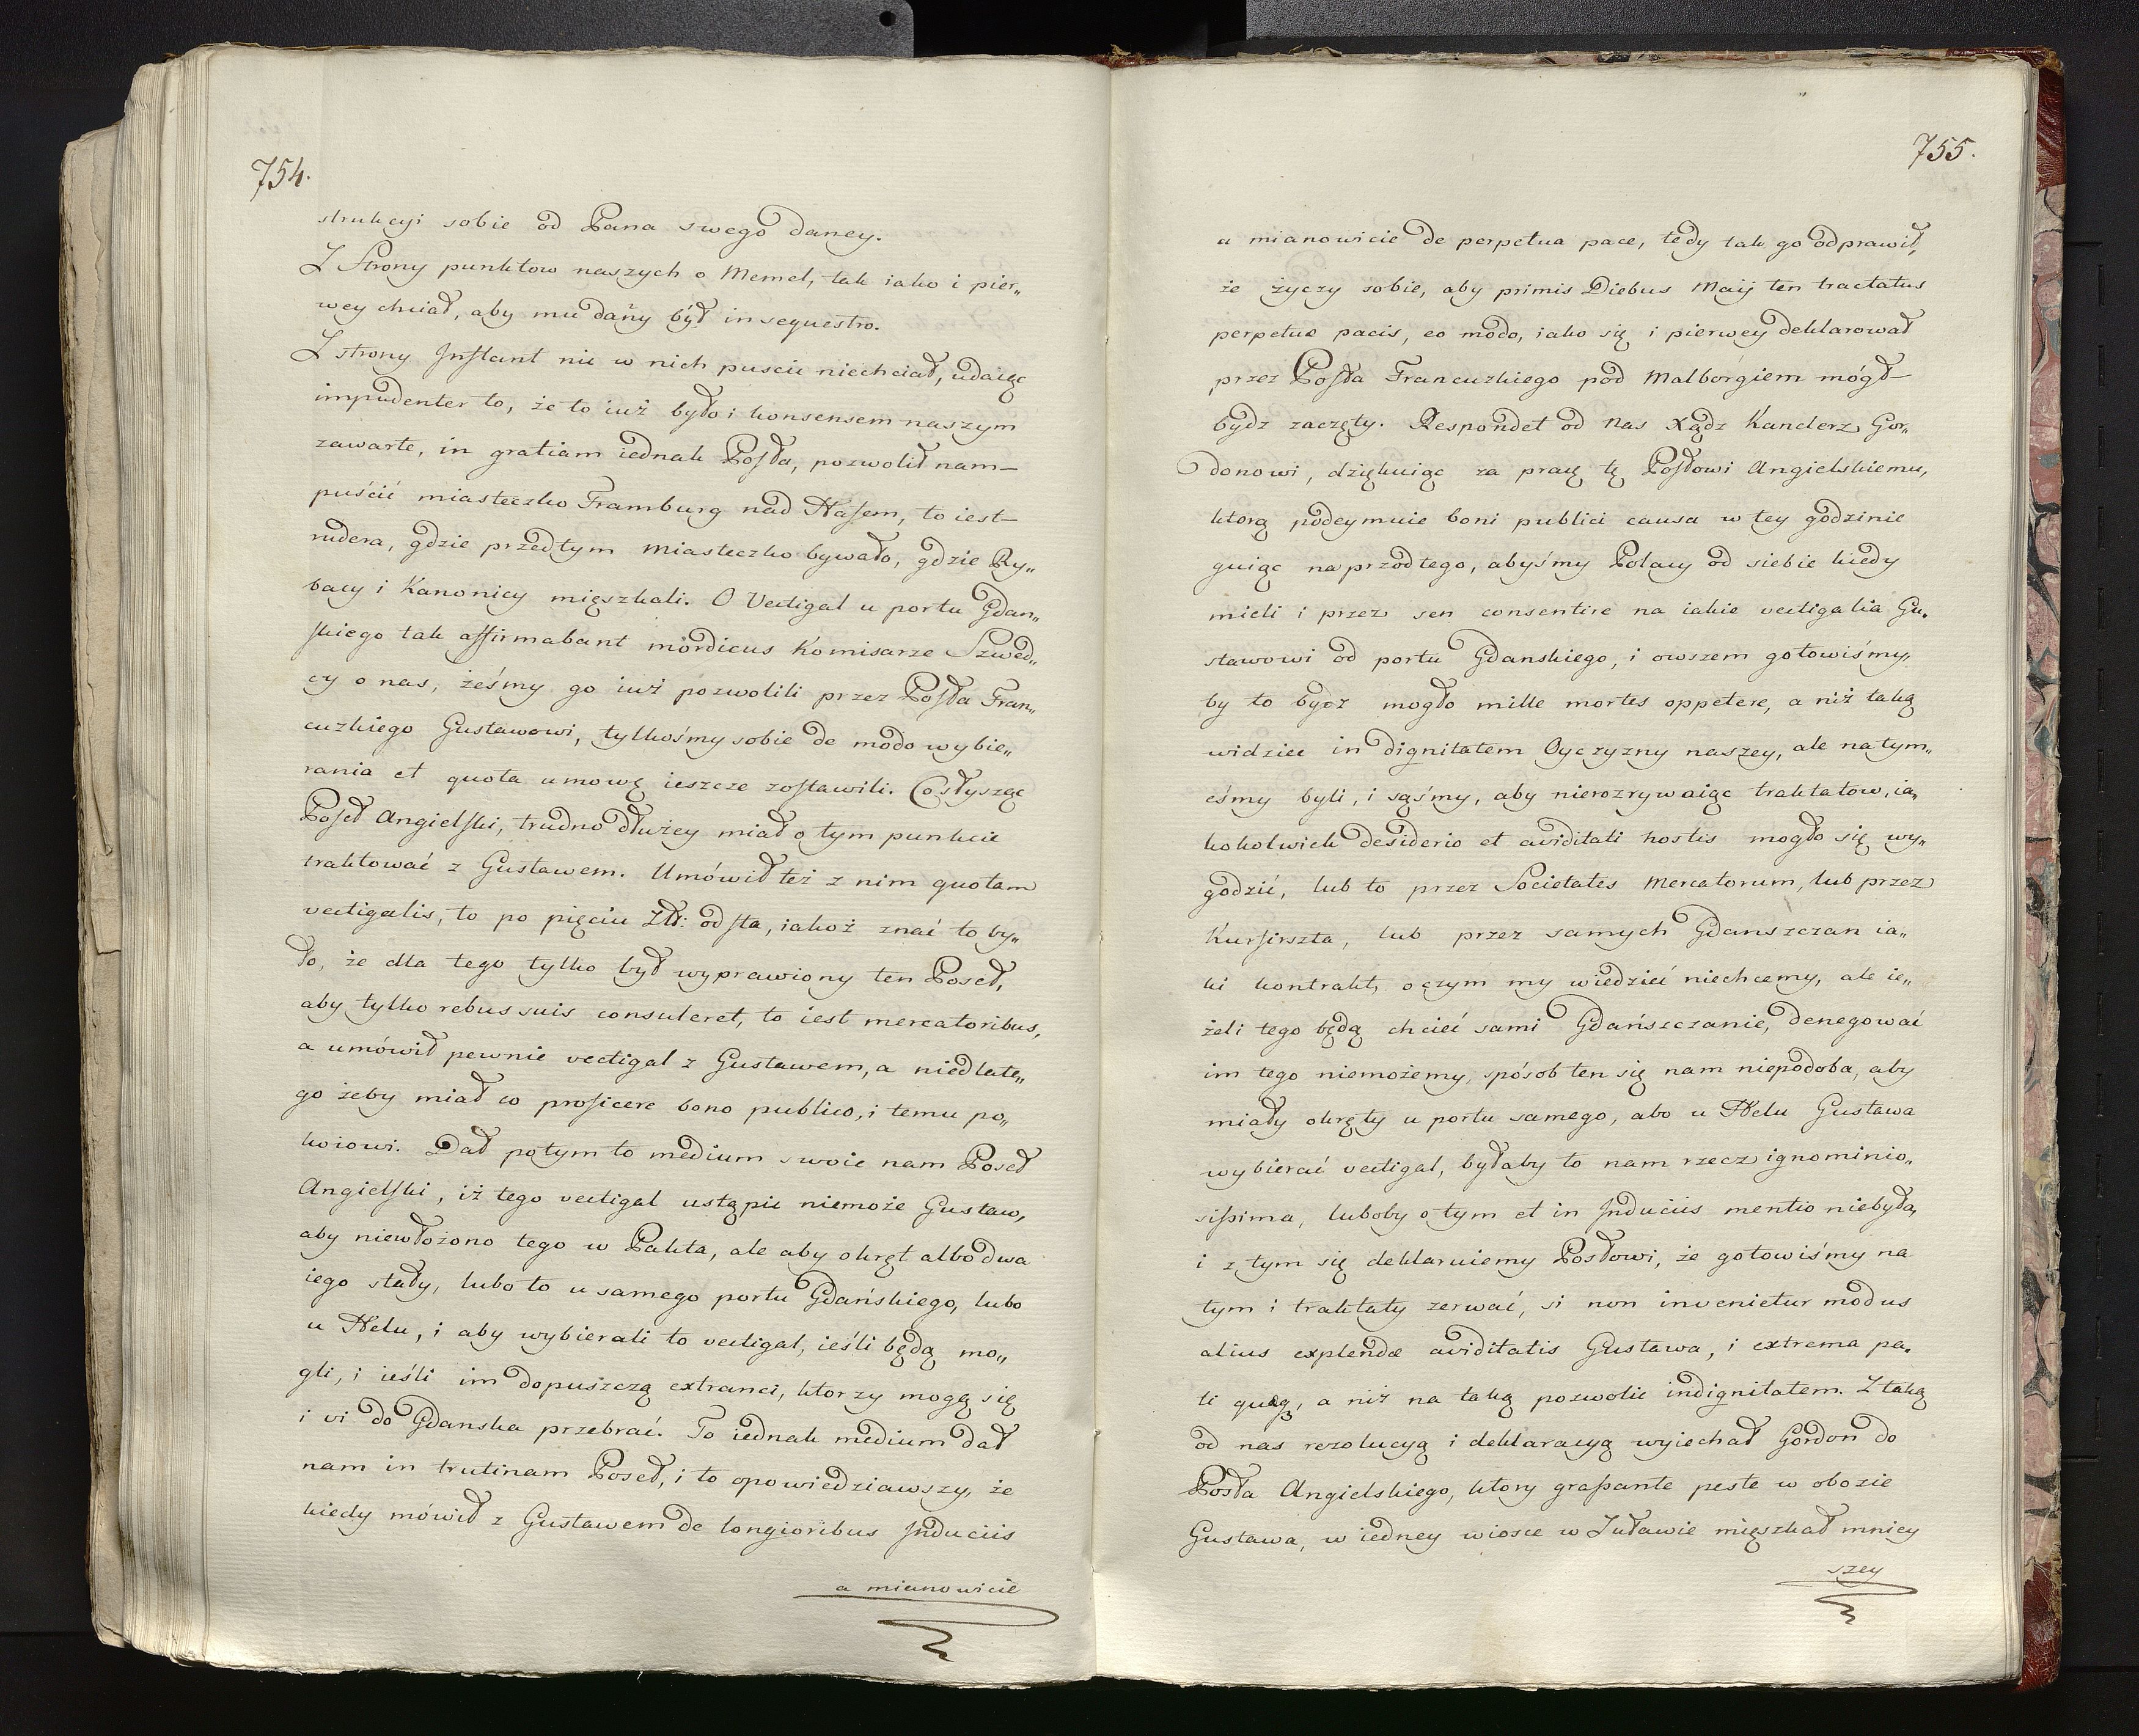 754.
strukcyi sobie od Pana swego daney.
Z Strony punktow naszych o Memel, tak iako i pier„
wey chciał, aby mu dany był in sequestro.
Z strony Inflant nic w nich puscic niechciał, udaiąc
impudenter to, że to iuż było i konsensem naszym
zawarte, in gratiam iednak Posła, pozwolił nam
puścić miasteczko Framburg nad Hafem, to iest
rudera, gdzie przedtym miasteczko bywało, gdzie Ry„
bacy i Kanonicy mięszkali. O Vectigal u portu Gdan„
skiego tak affirmabant mordicus Komisarze Szwed„
cy o nas, żeśmy go iuż pozwolili przez Posła Fran„
cuzkiego Gustawowi, tylkośmy sobie de modo wybie„
rania et quota umowę ieszcze zostawili. Co słysząc
Poseł Angielski, trudno dłużey miał o tym punkcie
traktować z Gustawem. Umówił też z nim quotam
vectigalis, to po pięciu Zł: od sta, iakoż znać to by„
ło, że dla tego tylko był wyprawiony ten Poseł,
aby tylko rebus suis consuleret, to iest mercatoribus,
a umówił pewnie vectigal z Gustawem, a niedlate„
go żeby miał co proficere bono publico, i temu po„
koiowi. Dał potym to medium swoie nam Poseł
Angielski, iż tego vectigal ustąpic niemoże Gustaw,
aby niewłożono tego w Pakta, ale aby okręt albo dwa
iego stały, lubo to u samego portu Gdańskiego, lubo
u Helu, i aby wybierali to vectigal, ieśli będą mo„
gli, i ieśli im dopuszczą extranei, ktorzy mogą się
i vi do Gdanska przebrać. To iednak medium dał
nam in trutinam Poseł, i to opowiedziawszy, że
kiedy mówił z Gustawem de longioribus Induciis
a mianowicie
755.
a mianowicie de perpetua pace, tedy tak go odprawił,
że życzy sobie, aby primis Diebus Maij ten tractatus
perpetuæ pacis, eo modo, iako się i pierwey deklarował
przez Posła Francuzkiego pod Malborgiem mógł
bydz zaczęty. Respondet od nas Xądz Kanclerz Gor„
donowi, dziękuiąc za pracę tę Posłowi Angielskiemu,
ktorą podeymuie boni publici causa w tey godzinie
guiąc naprzod tego, abyśmy Polacy od siebie kiedy
mieli i przez sen consentire na iakie vectigalia Gu„
stawowi od portu Gdanskiego, i owszem gotowiśmy,
by to bydz mogło mille mortes oppetere, a niż taką
widziec in dignitatem Oyczyzny naszey, ale na tym„
eśmy byli, i sąśmy, aby nierozrywaiąc traktatow, ia„
kokolwiek desiderio et aviditati hostis mogło się wy„
godzić, lub to przez Societates Mercatorum, lub przez
Kurfirszta, lub przez samych Gdanszczan ia„
ki kontrakt, o czym my wiedzieć niechcemy, ale ie„
żeli tego będą chcieć sami Gdańszczanie, denegować
im tego niemożemy, spósob ten się nam niepodoba, aby
miały okręty u portu samego, abo u Helu Gustawa
wybierać vectigal, byłaby to nam rzecz ignominio„
sissima, luboby o tym et in Induciis mentio niebyła,
i z tym się deklaruiemy Posłowi, że gotowiśmy na
tym i traktaty zerwać, si non invenietur modus
alius explendæ aviditatis Gustawa, i extrema pa„
ti quæq, a niż na taką pozwolic indignitatem. Z taką
od nas rezolucyą i deklaracyą wyiechał Gordon do
Posła Angielskiego, ktory grassante peste w obozie
Gustawa, w iedney wiosce w Żuławie mięszkał mniey
szey